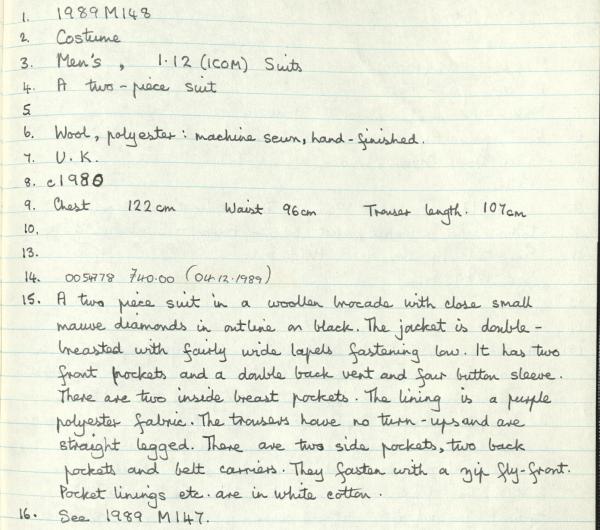 1. 1989 M148
2. Costume
3. Men's, 1.12 (ICOM) Suits
4. A two-piece suit
5
6. Wool, polyester: machine sewn, hand-finished.
7. U.K.
8. c1980
9. Chest 122cm Waist 96cm Trouser length. 107cm
10.
13.
14. 740.00 (04.12.1989)
15. A two piece suit in a woollen brocade with close small
mauve diamonds in outline on black. The jacket is double-
breasted with fairly wide lapels fastening low. It has two
front pockets and a double back vent and four button sleeve.
There are two inside breast pockets. The lining is a purple
polyester fabric. The trousers have no turn-ups and are
straight legged. There are two side pockets, two back
pockets and belt carriers. They fasten with a zip fly-front.
Pocket linings etc. are in white cotton.
16. See 1989 M147.